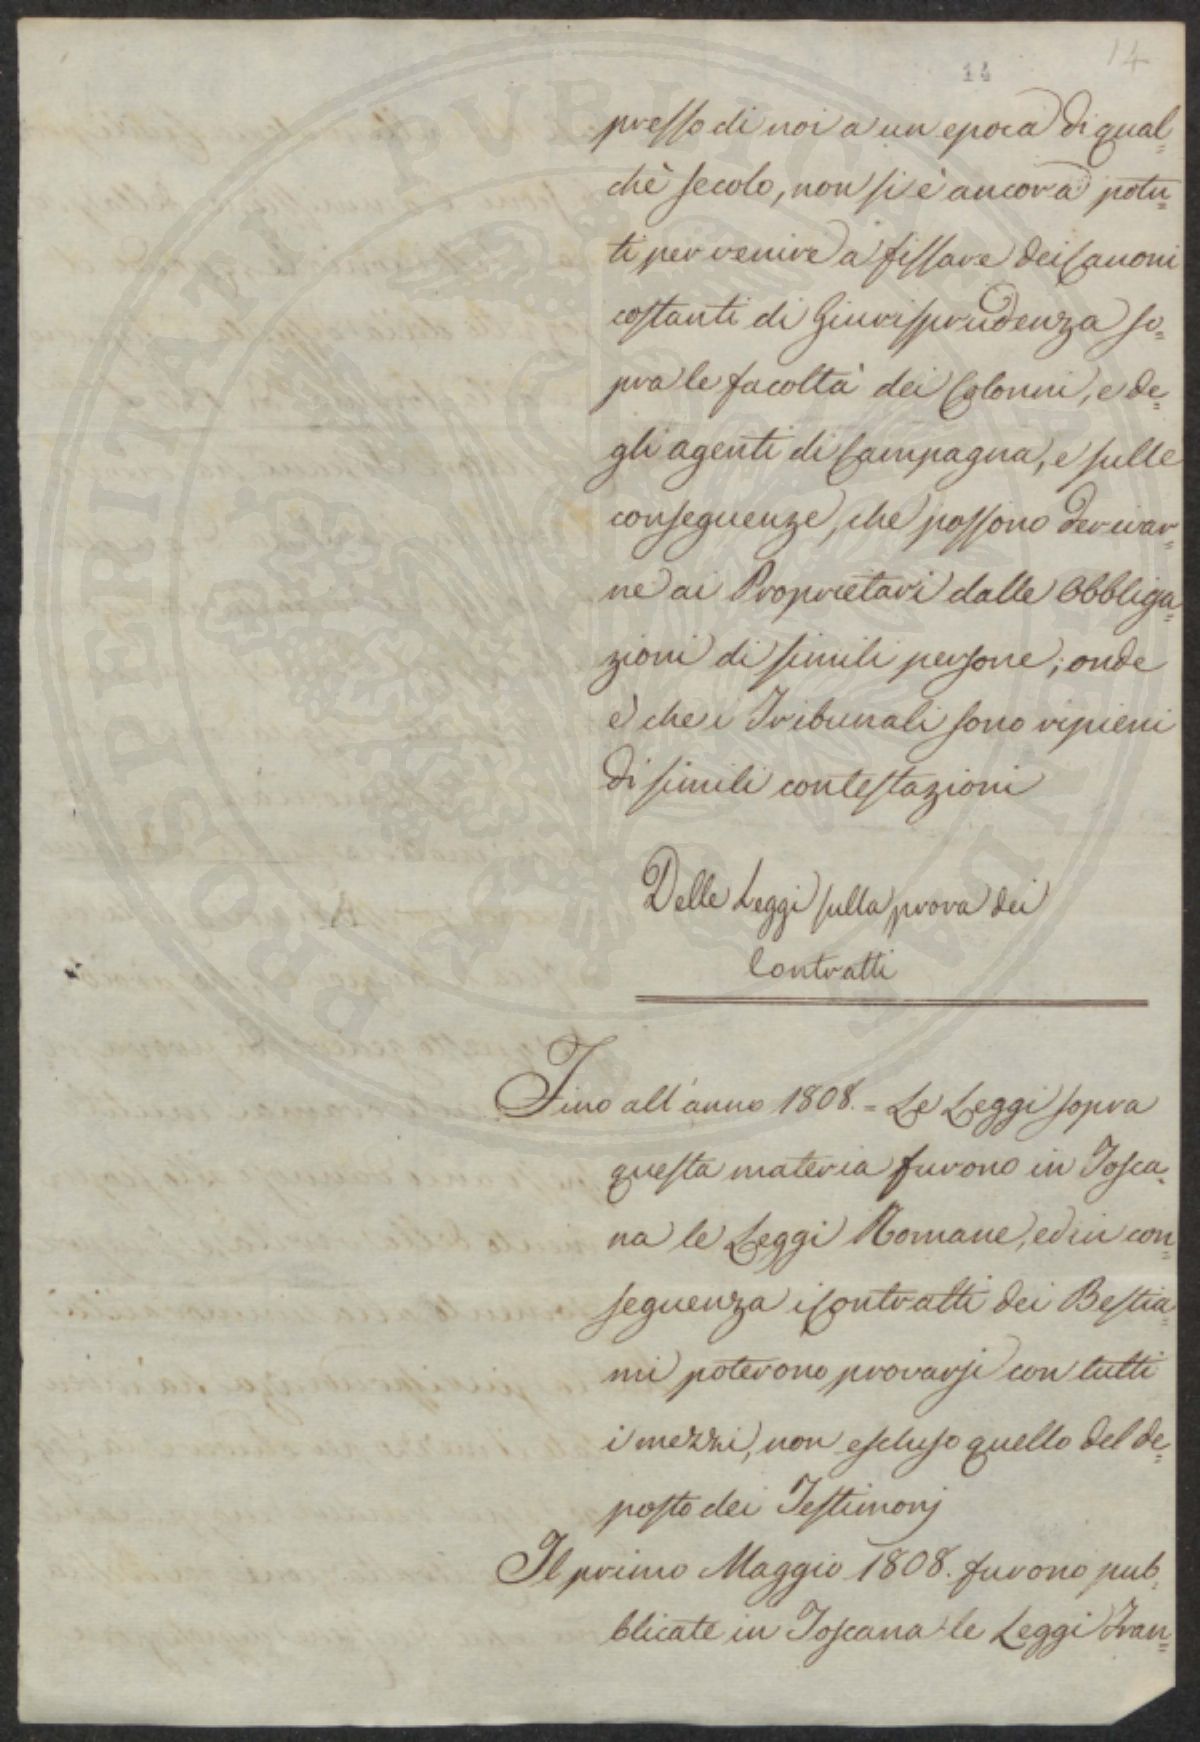 14
14
presso di noi a un epoca di qual=
chè secolo, non si è ancora potu=
ti pervenire a fissare dei Canoni
costanti di Giurisprudenza so=
pra le facoltà dei Colonni, e de=
gli agenti di Campagna, e sulle
conseguenze, che possono derivar=
ne ai Proprietari dalle Obbliga=
zioni di simili persone; onde
è che i Tribunali sono ripieni
di simili contestazioni
Delle Leggi sulla prova dei
Contratti
Fino all'anno 1808. = Le Leggi sopra
questa materia furono in Tosca=
na le Leggi Romane, ed in con=
seguenza i Contratti dei Bestia=
mi poterono provarsi con tutti
i mezzi, non escluso quello del de=
posto dei Testimonj
Il primo Maggio 1808. furono pub=
blicate in Toscana le Leggi Fran=
PROSPERITATI PUBLICAE